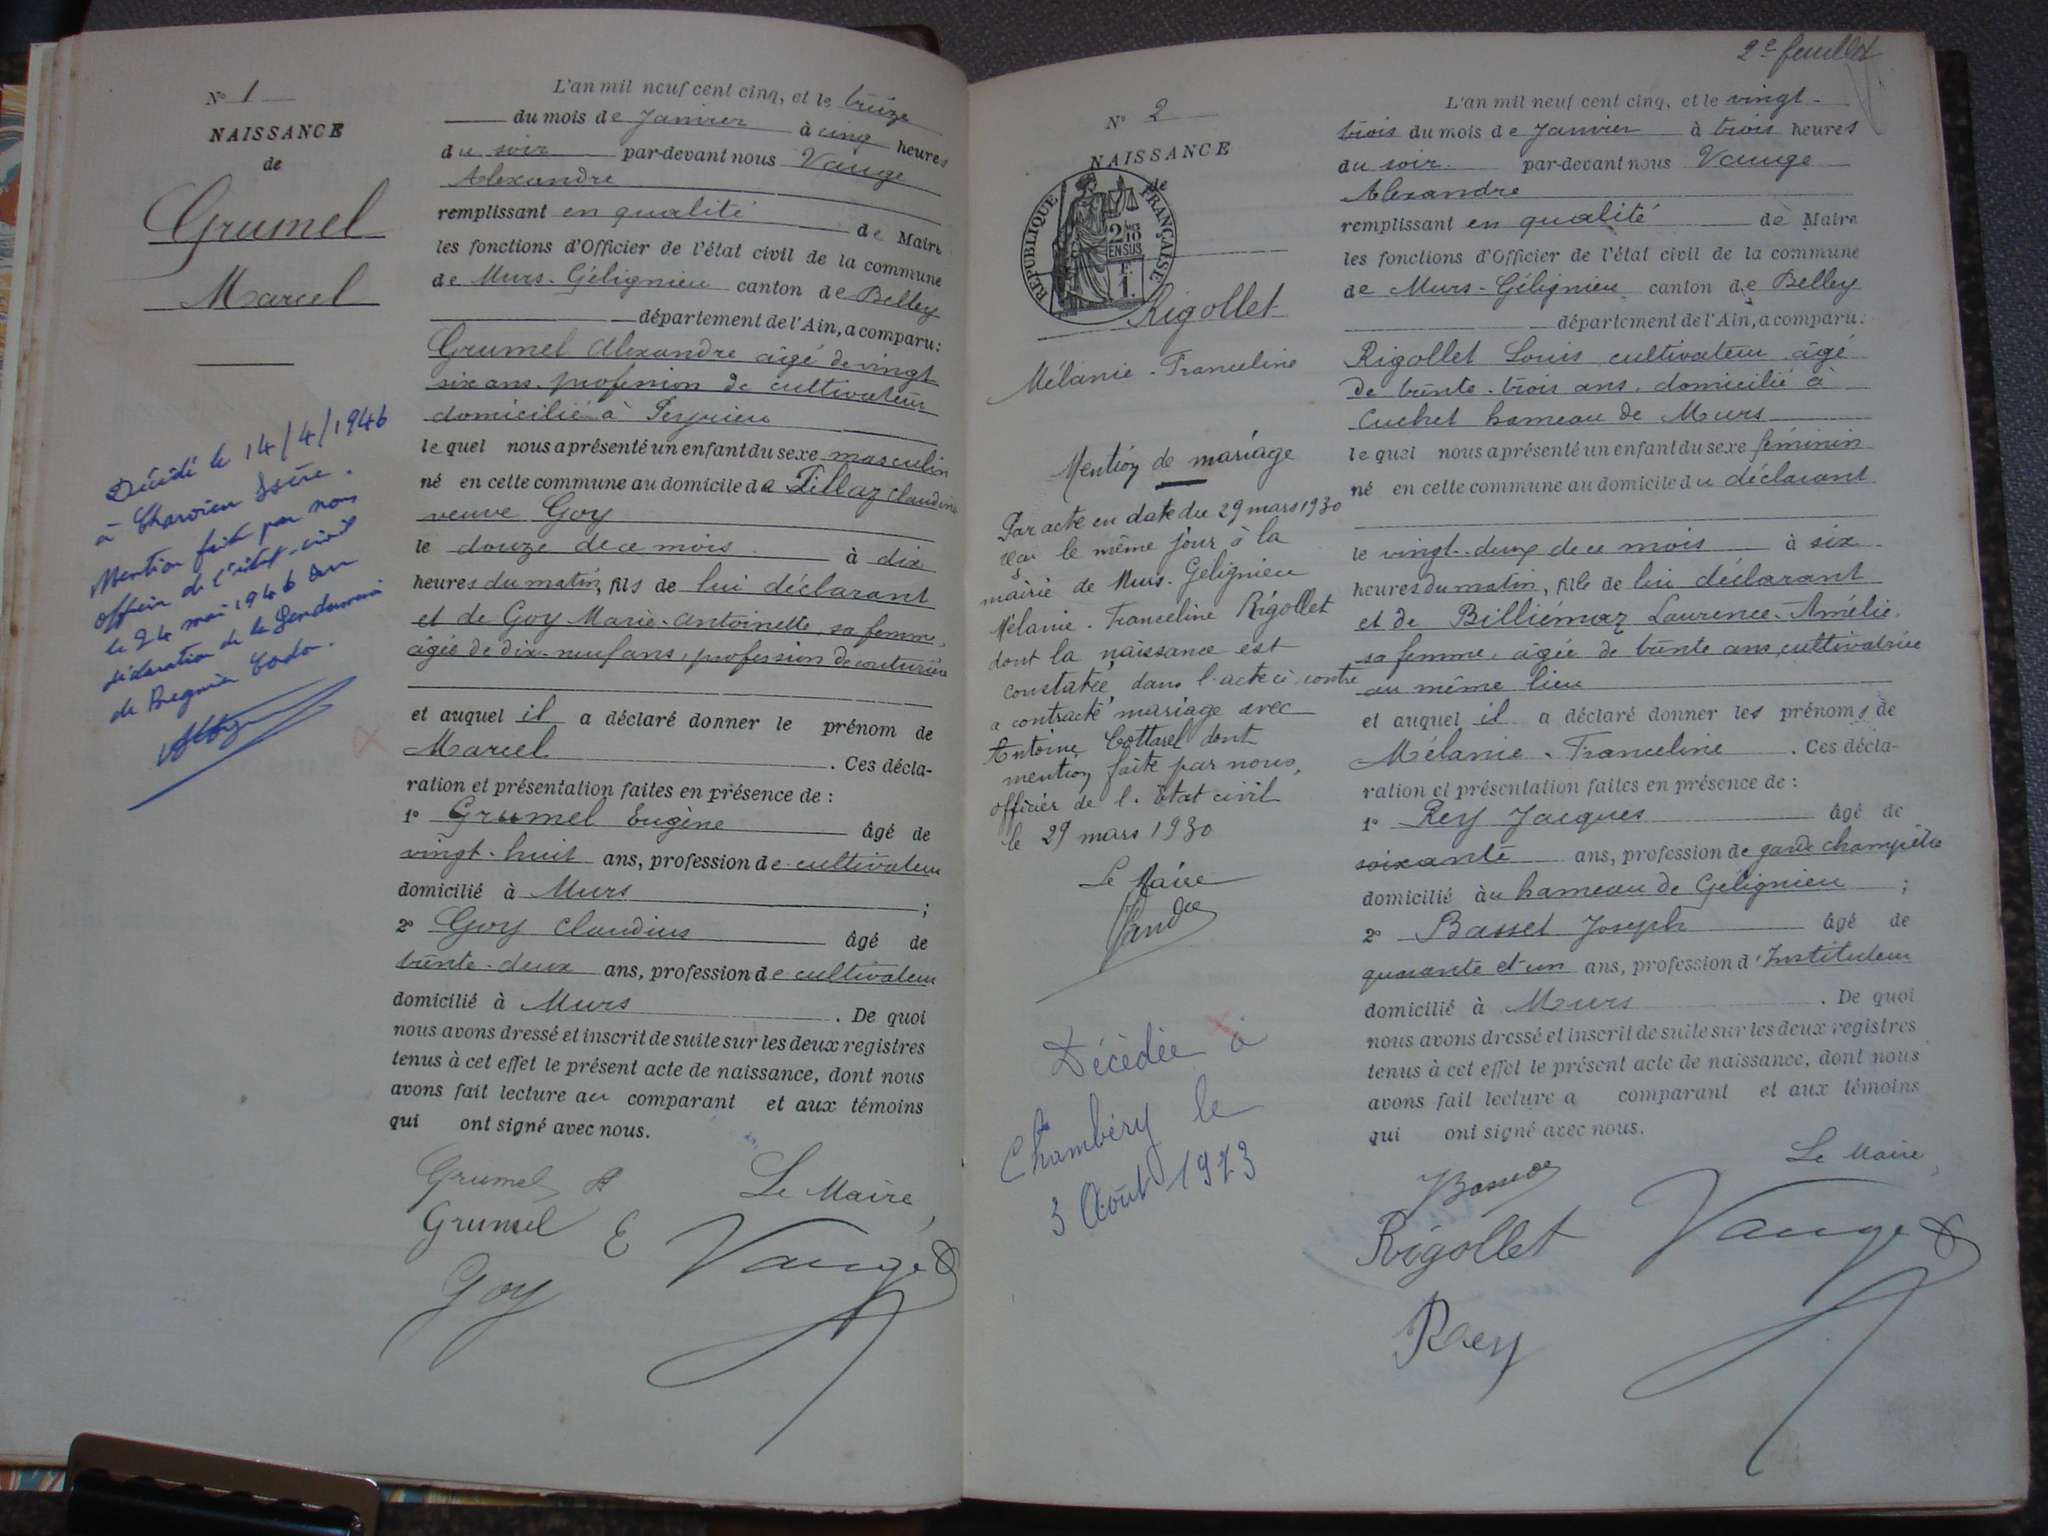 N° 1
NAISSANCE
de
Grumel
Marcel
Décédé le 14/4/1946
à Charvieu Isère.
Mention faite par nous
officier de l'état-civil
le 24 mai 1946 sur
déclaration de la Gendarmerie
de Bregnier Cordon.
L'an mil neuf cent cinq, et le treize
du mois de Janvier à cinq heures
du soir par-devant nous Vauge
Alexandre
remplissant en qualité de Maire
les fonctions d'Officier de l'état civil de la commune
de Murs-Gélignieu canton de Belley
département de l'Ain, a comparu:
Grumel Alexandre âgé de vingt
six ans profession de cultivateur
domicilié à Peyrieu
lequel nous a présenté un enfant du sexe masculin
né en cette commune au domicile de Pillaz Claudine
veuve Goy
le douze de ce mois à dix
heures du matin, fils de lui déclarant
et de Goy Marie-Antoinette, sa femme,
âgée de dix-neuf ans, profession de couturière
et auquel il a déclaré donner le prénom de
Marcel. Ces décla-
ration et présentation faites en présence de :
1° Grumel Eugène âgé de
vingt-huit ans, profession de cultivateur
domicilié à Murs ;
2° Goy Claudius âgé de
trente-deux ans, profession de cultivateur
domicilié à Murs. De quoi
nous avons dressé et inscrit de suite sur les deux registres
tenus à cet effet le présent acte de naissance, dont nous
avons fait lecture au comparant et aux témoins
qui ont signé avec nous.
Grumel A
Le Maire,
Grumel E
Vauge A
Goy
2e feuillet
N° 2
NAISSANCE
de
RÉPUBLIQUE FRANÇAISE
2 Mes 10
EN SUS
F.
1.
Rigollet
Mélanie-Franceline
Mention de mariage
Par acte en date du 29 mars 1930
reçu le même jour à la
mairie de Murs-Gelignieu
Mélanie-Franceline Rigollet
dont la naissance est
constatée dans l'acte ci-contre
a contracté mariage avec
Antoine Cottarel dont
mention faite par nous,
officier de l'Etat civil
le 29 mars 1930
Le Maire
Décédée à
Chambéry le
3 Août 1973
L'an mil neuf cent cinq, et le vingt-
trois du mois de Janvier à trois heures
du soir par-devant nous Vauge
Alexandre
remplissant en qualité de Maire
les fonctions d'Officier de l'état civil de la commune
de Murs-Gélignieu canton de Belley
département de l'Ain, a comparu:
Rigollet Louis cultivateur âgé
de trente-trois ans, domicilié à
Cuchet hameau de Murs
lequel nous a présenté un enfant du sexe féminin
né en cette commune au domicile du déclarant
le vingt-deux de ce mois à six
heures du matin, fille de lui déclarant
et de Billiémaz Laurence-Amélie,
sa femme, âgée de trente ans, cultivatrice
au même lieu
et auquel il a déclaré donner les prénoms de
Mélanie-Franceline. Ces décla-
ration et présentation faites en présence de :
1° Rey Jacques âgé de
soixante ans, profession de garde champêtre
domicilié au hameau de Gélignieu ;
2° Basset Joseph âgé de
quarante et un ans, profession d'Instituteur
domicilié à Murs. De quoi
nous avons dressé et inscrit de suite sur les deux registres
tenus à cet effet le présent acte de naissance, dont nous
avons fait lecture a comparant et aux témoins
qui ont signé avec nous.
Le Maire,
Rigollet
Vauge A
Rey